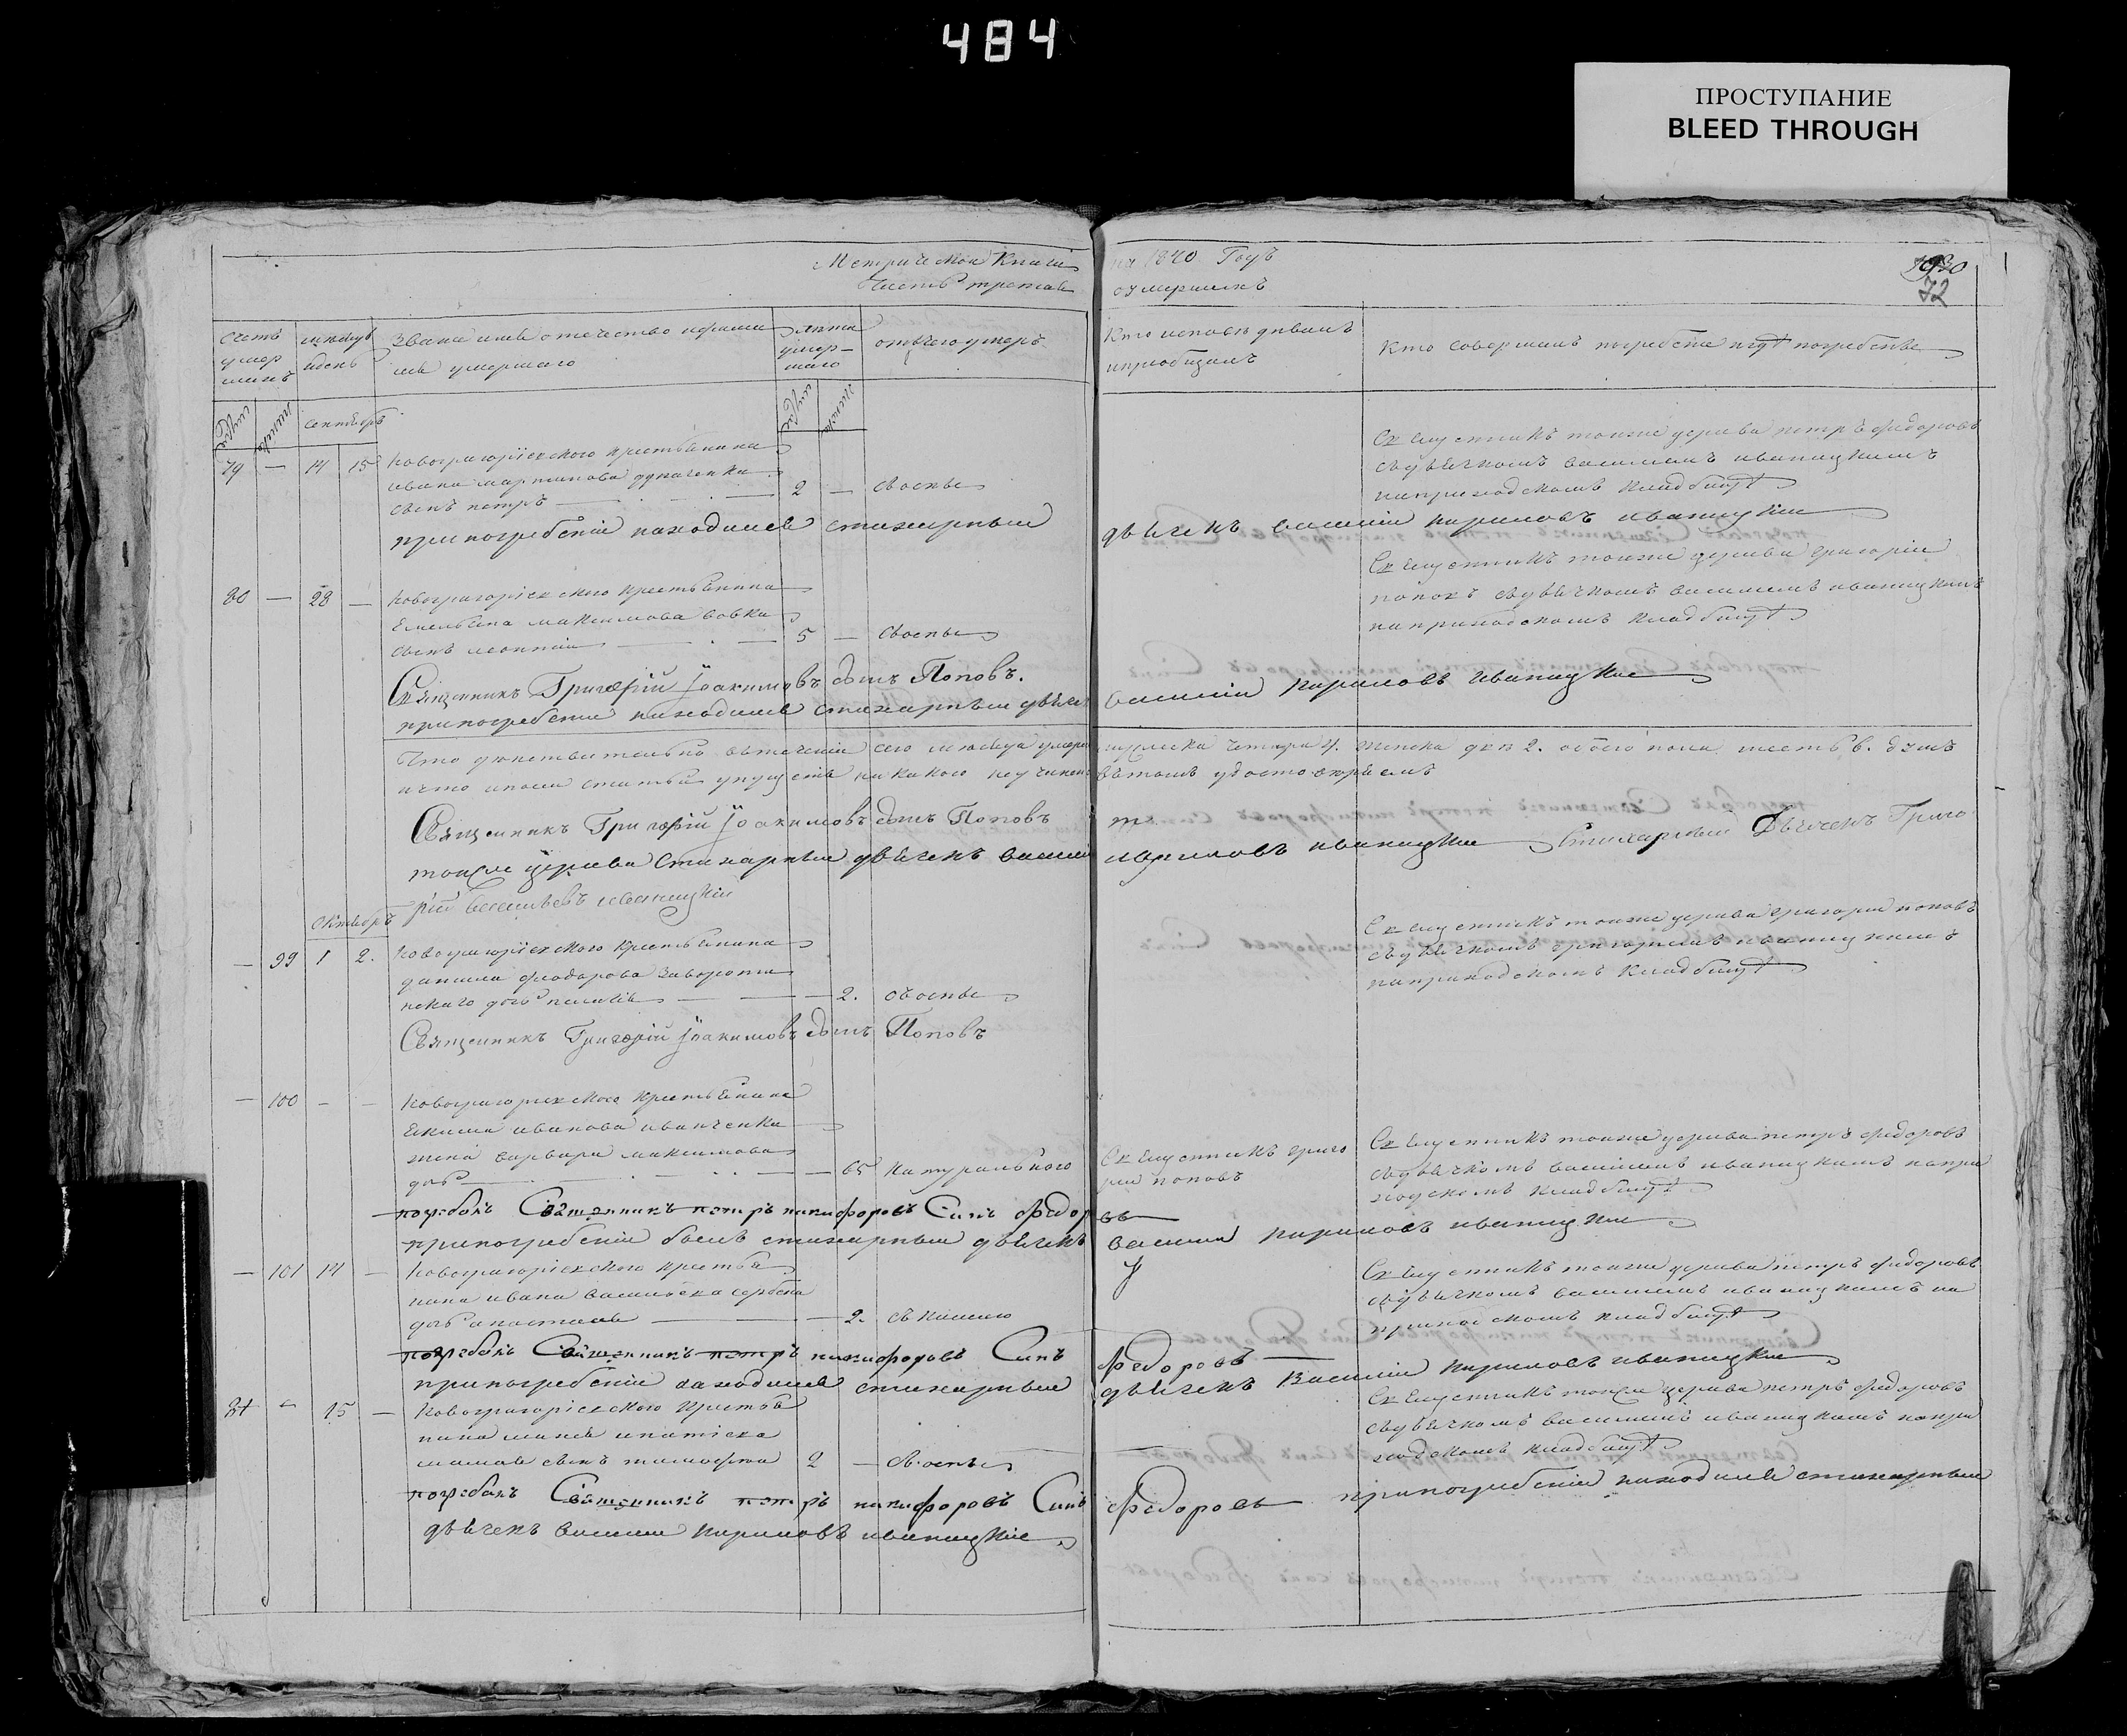 484
ПРОСТУПАНИЕ
BLEED THROUGH
Метрической Книги на 1840 Годъ
Часть третая о умершихъ
72
Счетъ умер шихъ
мѣсяцъ идень
Званіе имя отечество ифамилія умершаго
Лѣта умер-шаго
отъчего умеръ
Кто исповѣдывалъ ипріобщалъ
Кто совершалъ погребеніе игдѣ погребены
Сентябрь
79 — 14 15 Новогригоріевского крестьянина
ивана мартинова
сынъ петръ — 2 — съоспы
Священникъ тоижа церкви петръ федоровъ
съдьячкомъ василіемъ иваницкимъ
наприходскомъ кладбищѣ
припогребеніи находился стихарныи дьячекъ василіи кириловъ иваницкіи
80 — 28 — Новогригоріевского крестьянина
Емельяна максимова вовка
сынъ леонтіи — 5 — съоспы
Священникъ тоижа церкви григоріи
поповъ съдьячкомъ василіемъ иваницкимъ
наприходскомъ кладбищѣ
Священникъ Григорій Іоакимовъ сынъ Поповъ.
припогребеніи находился стихарныи дьячекъ василіи кириловъ иваницкіи
Что дѣйствительно втеченіи сего мѣсяца умерло мужеска четыри 4. женска два 2. обоего пола шесть 6. душъ
ичто вписаніи упущенія никакого неучинено втомъ удостовѣряемъ
Священникъ Григорій Іоакимовъ сынъ Поповъ
тоижа церкви Стихарныи дьячекъ василіи кириловъ иваницкіи Стихарный Дьячекъ Григо
рій васильевъ иваницкіи
Октябрь
— 99 1 2. Новогригоріевского крестьянина
данила феодорова заворотин
скаго дочь пелагія — 2. съоспы
Священникъ тоижа церкви григоріи поповъ
съдьячкомъ григоріемъ иваницкимъ
наприходскомъ кладбищѣ
Священникъ Григорій Іоакимовъ сынъ Поповъ
— 100 — — Новогригоріевского крестьянина
Екима иванова иванченка
жена варвара максимова
дочь — 65 натурально
Священникъ григо
ріи поповъ
Священникъ тоижа церкви петръ федоровъ
съдьячкомъ василіемъ иваницкимъ напри
ходскомъ кладбищѣ
погребалъ Священникъ петръ никифоровъ Синъ федоровъ
припогребеніи былъ стихарныи дьячекъ василіи кириловъ иваницкіи
— 101 14 — Новогригоріевского крестья
нина ивана василіева
дочь анастасія — 2. съкашлю
Священникъ тоижа церкви петръ федоровъ
съдьячкомъ василіемъ иваницкимъ на
приходскомъ кладбищѣ
погребалъ Священникъ петръ никифоровъ Синъ федоровъ
припогребеніи находился стихарныи дьячекъ Василіи кириловъ иваницкіи
— 15 — Новогригоріевского крестья
нина
сынъ тимофеи 2 — съоспы
Священникъ тоижа церкви петръ федоровъ
съдьячкомъ василіемъ иваницкимъ напри
ходскомъ кладбищѣ
погребалъ Священникъ петръ никифоровъ Синъ федоровъ припогребеніи находился стихарныи
дьячекъ василіи кириловъ иваницкіи